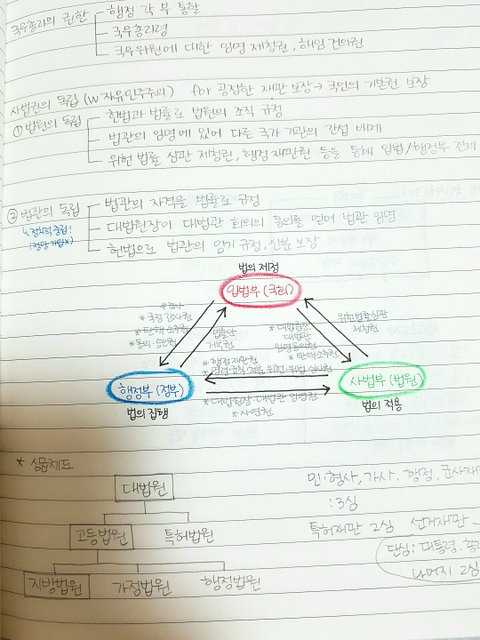 국무총리의 권한
행정 각 부 통할
국무총리령
국무위원에 대한 임명 제청권, 해임 건의권
사법권의 독립 (w 자유민주주의) for 공정한 재판 보장 → 국민의 기본권 보장
① 법원의 독립
헌법과 법률로 법원의 조직 규정
법관의 임명에 있어 다른 국가 기관의 간섭 배제
위헌 법률 심판 제청권, 행정 재판권 등을 통해 입법/행정부 견제
② 법관의 독립
법관의 자격을 법률로 규정
↳ 정치적 중립!
대법원장이 대법관 회의의 동의를 얻어 법관 임명
(정당 가입 x)
헌법으로 법관의 임기 규정, 신분 보장
법의 제정
입법부 (국회)
* 국정 감사권
* 탄핵 소추권
* 동의·승인권
법률안
거부권
* 대법원장·
대법관
임명 동의권
* 탄핵 소추권
위헌법률심판
제청권
* 행정 재판권
행정부 (정부)
사법부 (법원)
법의 집행
* 대법원장·대법관 임명권
* 사면권
법의 적용
* 심급제도
대법원
고등법원 특허법원
지방법원 가정법원 행정법원
민·형사, 가사, 행정, 군사재
: 3심
특허재판 2심 선거재판
단심: 대통령,
나머지 2심